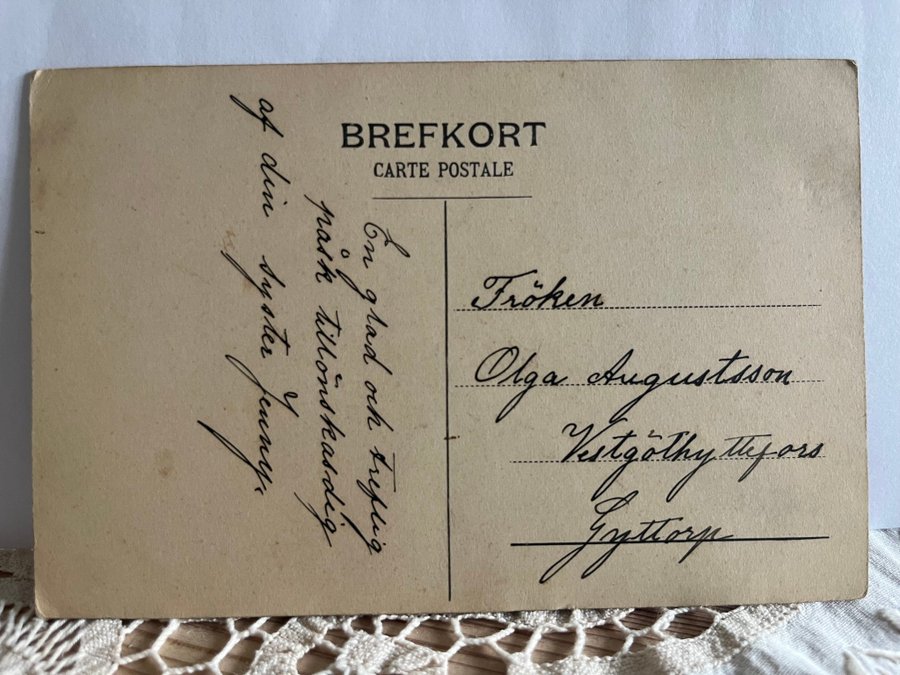 BREFKORT
CARTE POSTALE
En glad och treflig
påsk tillönskas dig
af din syster Jenny.
Fröken
Olga Augustsson
Vestgöthyttefors
Gyttorp